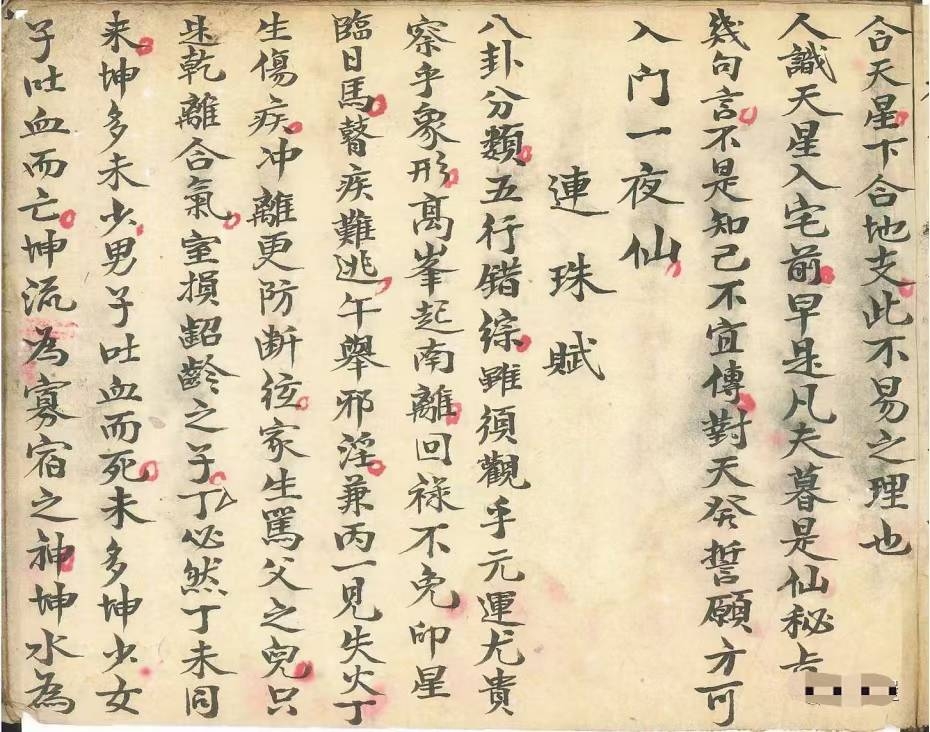 合天星下合地支此不易之理也
人識天星入宅前早是凡夫暮是仙秘
幾句言不是知己不宜傳對天發誓願方可
入門一夜仙
連珠賦
八卦分類五行錯綜雖須觀乎元運尤貴
察乎象形离峯起南離回祿不免卯星
臨日馬瞽疾難逃午舉邪淫兼丙一見失火丁
生傷疾冲離更防断弦家生罵父之兒只
迷乾離合氣室損齠齡之子丁必然丁未同
来坤多未少男子吐血而死未多坤少女
子吐血而亡坤流為寡宿之神坤水為